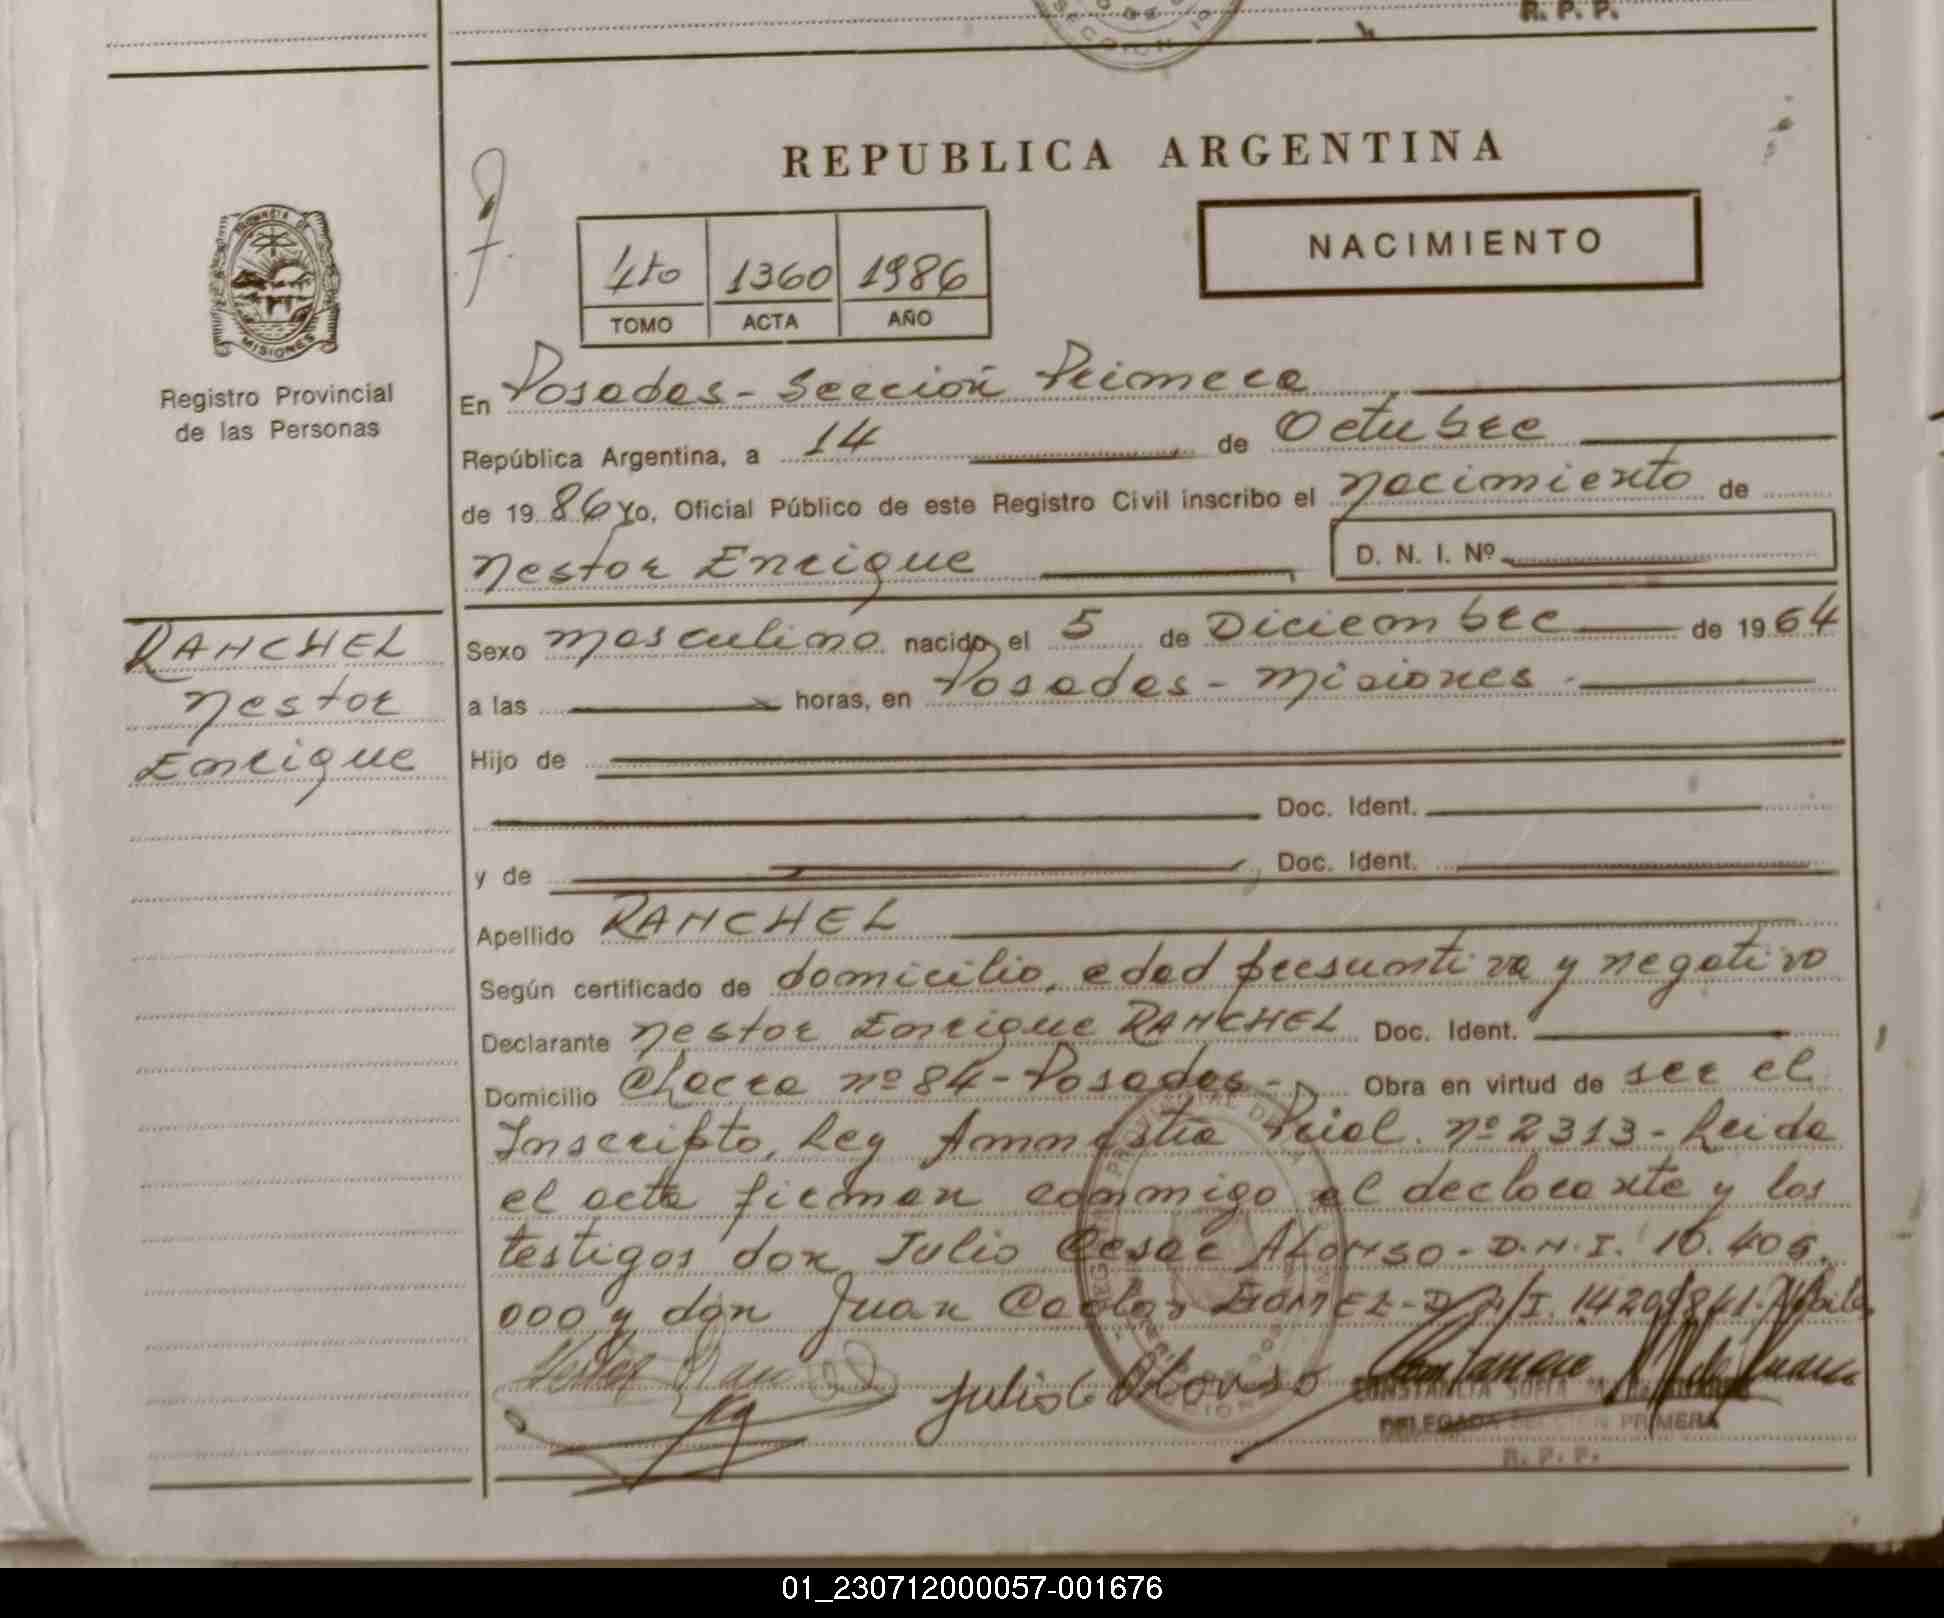 R. P. P.
REPUBLICA ARGENTINA
PROVINCIA DE
MISIONES
Registro Provincial
de las Personas
4to 1360 1986
TOMO ACTA AÑO
NACIMIENTO
En Posadas - Sección Primera
República Argentina, a 14 de Octubre
de 1986 Yo, Oficial Público de este Registro Civil inscribo el nacimiento de
Nestor Enrique D. N. I. Nº
RANCHEL
Nestor
Enrique
Sexo masculino nacido el 5 de Diciembre de 1964
a las horas, en Posadas - Misiones
Hijo de
Doc. Ident.
y de Doc. Ident.
Apellido RANCHEL
Según certificado de domicilio, edad presuntiva y negativo
Declarante Nestor Enrique RANCHEL Doc. Ident.
Domicilio Chacra nº 84 - Posadas - Obra en virtud de ser el
Inscripto, Ley Amnistia Prial. nº 2313 - Leida
el acta firman conmigo el declarante y los
testigos don Julio Cesar ALONSO - D.N.I. 16.406.
000 y don Juan Carlos D.N.I.
Julio C Alonso
CONSTANCIA SOFIA
DELEGADA SECCION PRIMERA
R. P. P.
01_230712000057-001676